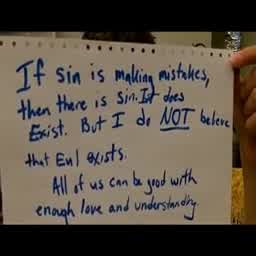 If sin is making mistakes,
then there is Sin. It does
Exist. But I do NOT beleve
that Evil exists.
All of us can be good with
enough love and understandng.